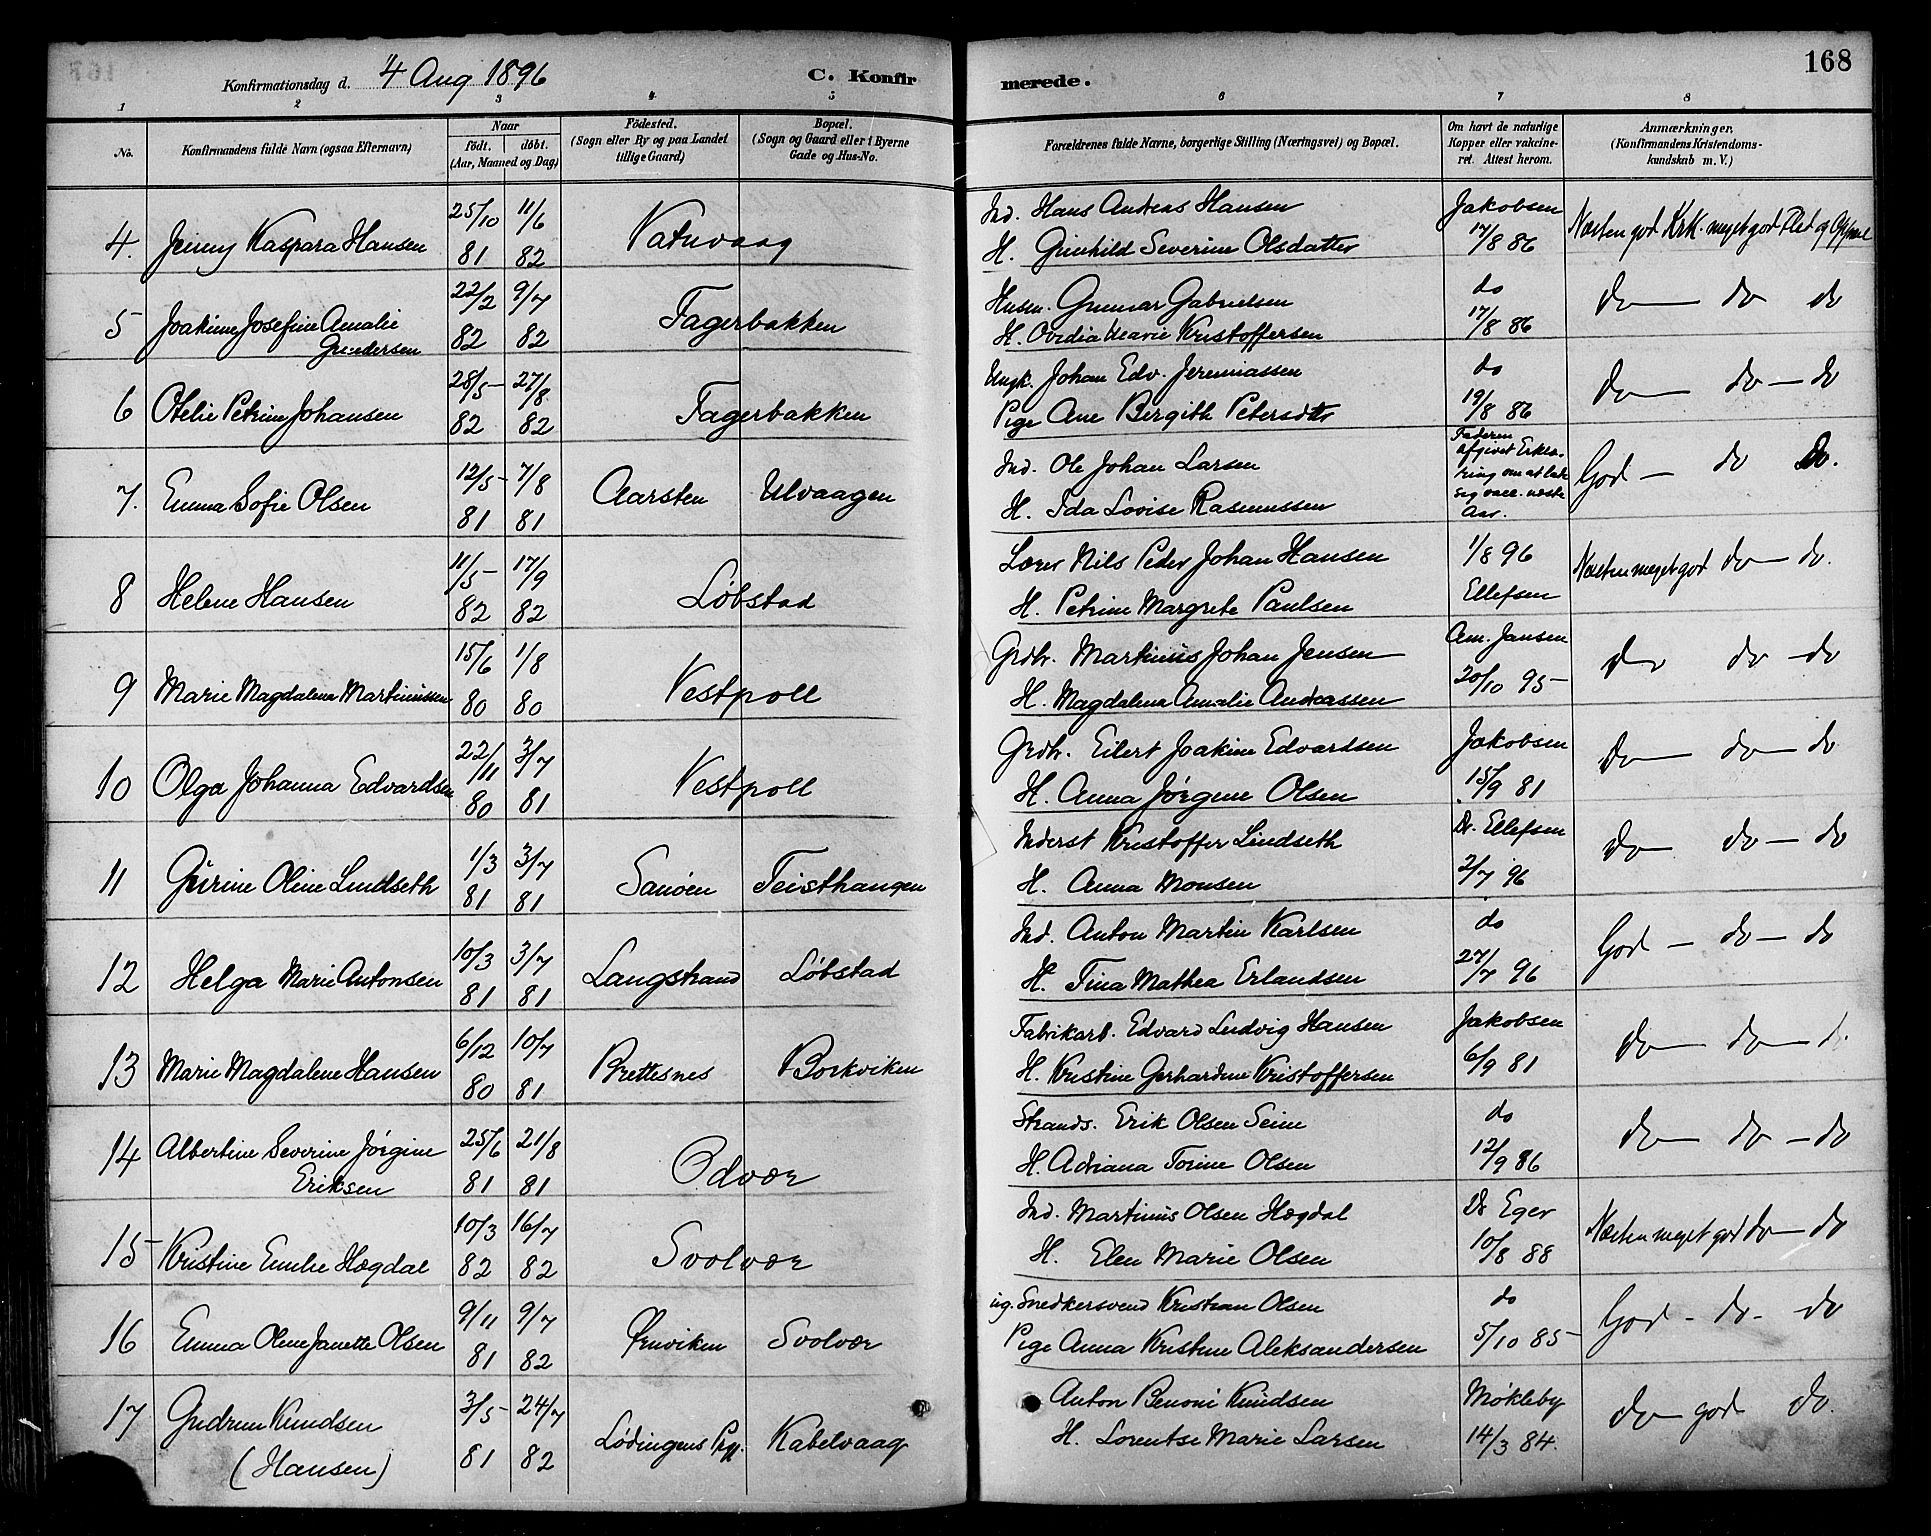 168
Konfirmationsdag d. 4 Aug 1896 C. Konfirmerede.
1 2 3 4 5 6 7 8
No. Konfirmandens fulde Navn (ogsaa Efternavn) Naar født. døbt. (Aar, Maaned og Dag) Fødested. (Sogn eller By og paa Landet tillige Gaard) Bopæl. (Sogn og Gaard eller i Byerne Gade og Hus-No. Forældrenes fulde Navne, borgerlige Stilling (Næringsvei) og Bopæl. Om havt de naturlige Kopper eller vakcineret. Attest herom. Anmærkninger. (Konfirmandens Kristendomskundskab m. V.)
4. Jenny Kaspara Hansen 25/10 81 11/6 82 Vatnvaag
Ind. Hans Andreas Hansen Jakobsen
H. Gunhild Severine Olsdatter 17/8 86 Næsten god Krk. meget god Flid og Opførsel
5 Joakime Josefine Amalie Gundersen 22/2 82 9/7 82 Fagerbakken
Husm. Gunnar Gabrielsen do
H. Ovedia Marie Kristoffersen 17/8 86 do do do
6 Otelie Petrine Johansen 28/5 82 27/8 82 Fagerbakken
Ungk. Johan Edv. Jeremiassen do
Pige Ane Bergith Petersdtr 19/8 86 do do do
7. Emma Sofie Olsen 12/5 81 7/8 81 Aarsten Ulvaagen
Ind. Ole Johan Larsen Faderen afgivet Erklæ-
H. Ida Lovise Rasmussen ring om at lade sig vacc. næste Aar. God do do.
8 Helene Hansen 11/5 82 17/9 82 Løbstad
Lærer Nils Peder Johan Hansen 1/8 96
H. Petrine Margrete Paulsen Ellefsen Næsten meget god do do.
9 Marie Magdalena Martinussen 15/6 80 1/8 80 Vestpoll
Grdbr. Martinus Johan Jensen Am. Jansen
H. Magdalena Amalie Andreassen 20/10 95 do do do
10 Olga Johanna Edvardsen 22/11 80 3/7 81 Vestpoll
Grdbr. Eilert Joakim Edvardsen Jakobsen
H. Anna Jørgine Olsen 15/9 81 do do do
11 Gurine Oline Lindseth 1/3 81 3/7 81 Sanøen Teisthaugen
Inderst Kristoffer Lindseth Dr. Ellefsen
H. Anna Monsen 2/7 96 do do do
12 Helga Marie Antonsen 10/3 81 3/7 81 Langstrand Løbstad
Ind. Anton Martin Karlsen do
H. Tina Mathea Erlandsen 27/7 96 God do do
13 Marie Magdalene Hansen 6/12 80 10/7 81 Brettesnes Borkviken
Fabrikarb. Edvard Ludvig Hansen Jakobsen
H. Kristine Gerhardine Kristoffersen 6/9 81 do do d.
14 Albertine Severine Jørgine Eriksen 25/6 81 21/8 81 Odvær
Strands. Erik Olsen Seine do
H. Adriana Torine Olsen 12/9 86 do do do
15 Kristine Emilie Hægdal 10/3 82 16/7 82 Svolvær
Ind. Martinus Olsen Hægdal Dr Eger
H. Elen Marie Olsen 10/8 88 Næsten meget god do do
16 Emma Oline Janette Olsen 9/11 81 9/7 82 Ørnviken Svolvær
ug. Snedkersvend Kristian Olsen do
Pige Anna Kristine Aleksandersen 5/10 85 God do do
17 Gudrun Knudsen (Hansen) 3/5 81 24/7 82 Lødingens Prgj. Kabelvaag
Anton Benoni Knudsen Møkleby
H. Lorentse Marie Larsen 14/3 84. do god do.